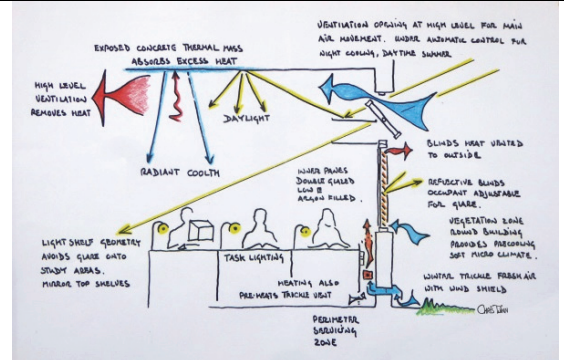 VENTILATION OPENING AT HIGH LEVEL FOR MAIN
AIR MOVEMENT. UNDER AUTOMATIC CONTROL FOR
NIGHT COOLING, DAYTIME SUMMER
EXPOSED CONCRETE THERMAL MASS
ABSORBS EXCESS HEAT
HIGH LEVEL
VENTILATION
REMOVES HEAT
DAYLIGHT
RADIANT COOLTH
BLINDS HEAT VENTED
TO OUTSIDE
INNER PANES
DOUBLE GLAZED
LOW E
ARGON FILLED.
REFLECTIVE BLINDS
OCCUPANT ADJUSTABLE
FOR GLARE.
VEGETATION ZONE
ROUND BUILDING
PROVIDES PRECOOLING
SOFT MICRO CLIMATE.
LIGHT SHELF GEOMETRY
AVOIDS GLARE ONTO
STUDY AREAS.
MIRROR TOP SHELVES
TASK LIGHTING
HEATING ALSO
PRE-HEATS TRICKLE VENT
WINTER TRICKLE FRESH AIR
WITH WIND SHIELD
PERIMETER
SERVICING
ZONE